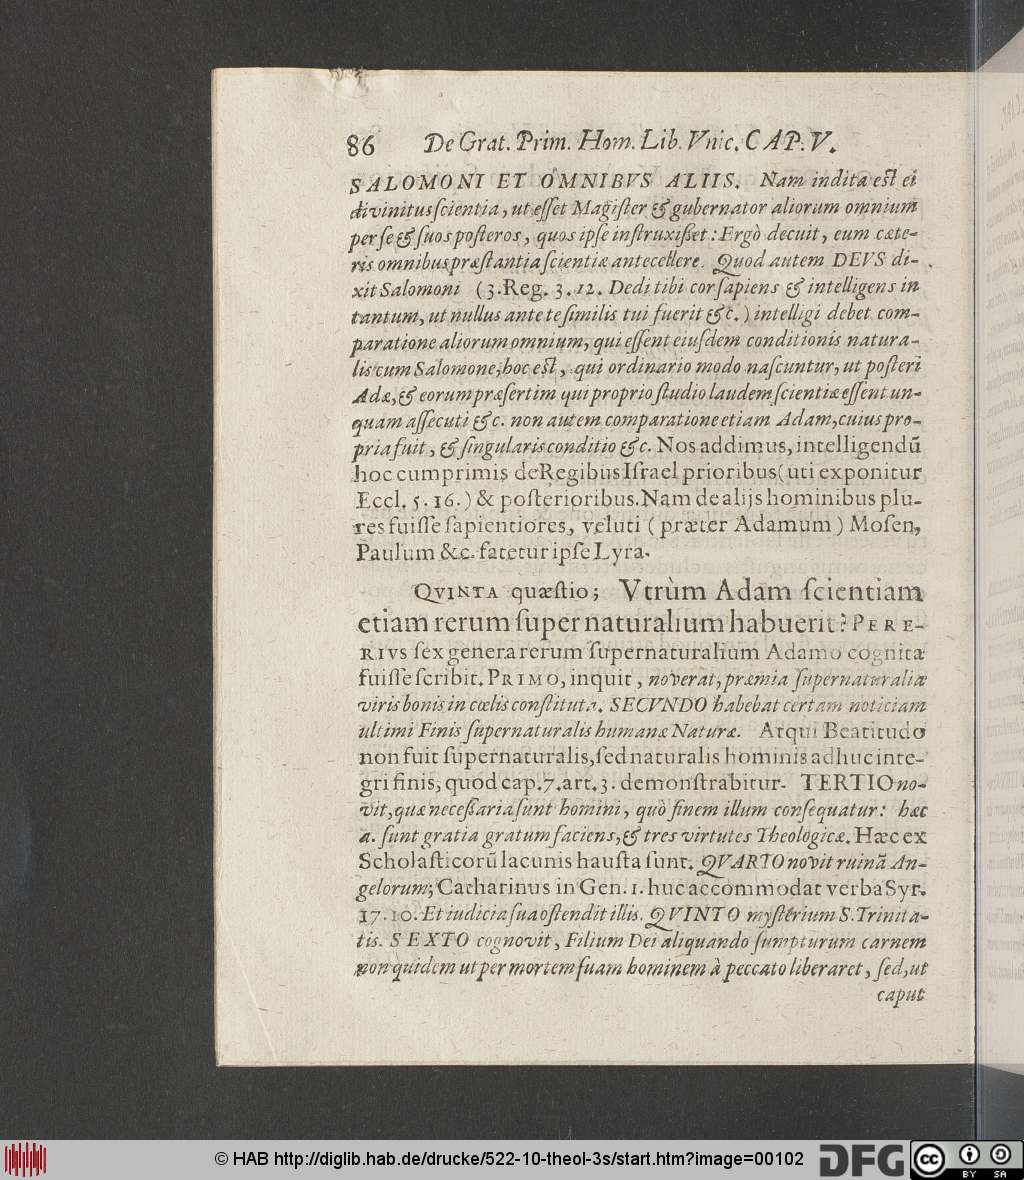 86 De Grat. Prim. Hom. Lib. Vnic. CAP. V.
SALOMONI ET OMNIBVS ALIIS. Nam indita est ei
divinitus ſcientia, ut eſſet Magiſter & gubernator aliorum omnium
per ſe & ſuos poſteros, quos ipſe inſtruxißet: Ergò decuit, eum cæte-
ris omnibus præſtantia ſcientiæ antecellere. Quod autem DEVS di-
xit Salomoni (3. Reg. 3. 12. Dedi tibi cor ſapiens & intelligens in
tantum, ut nullus ante te ſimilis tui fuerit &c.) intelligi debet com-
paratione aliorum omnium, qui eſſent eiuſdem conditionis natura-
lis cum Salomone; hoc eſt, qui ordinario modo naſcuntur, ut poſteri
Adæ, & eorum præſertim qui proprio ſtudio laudem ſcientiæ eſſent un-
quam aſſecuti &c. non autem comparatione etiam Adam, cuius pro-
pria fuit, & ſingularis conditio &c. Nos addimus, intelligendū
hoc cumprimis de Regibus Iſrael prioribus (uti exponitur
Eccl. 5. 16.) & poſterioribus. Nam de alijs hominibus plu-
res fuiſſe ſapientiores, veluti (præter Adamum) Moſen,
Paulum &c. fatetur ipſe Lyra.
QVINTA quæſtio; Vtrùm Adam ſcientiam
etiam rerum ſupernaturalium habuerit? PERE-
RIVS ſex genera rerum ſupernaturalium Adamo cognita
fuiſſe ſcribit. PRIMO, inquit, noverat, præmia ſupernaturaliæ
viris bonis in cœlis conſtituta. SECVNDO habebat certam noticiam
ultimi Finis ſupernaturalis humanæ Naturæ. Atqui Beatitudo
non fuit ſupernaturalis, ſed naturalis hominis adhuc inte-
gri finis, quod cap. 7. art. 3. demonſtrabitur. TERTIO no-
vit, quæ neceßaria ſunt homini, quò finem illum conſequatur: hæc
a. ſunt gratia gratum faciens, & tres virtutes Theologicæ. Hæc ex
Scholaſticorū lacunis hauſta ſunt. QVARTO novit ruinā An-
gelorum; Catharinus in Gen. 1. huc accommodat verba Syr.
17. 10. Et iudicia ſua oſtendit illis. QVINTO myſterium S. Trinita-
tis. SEXTO cognovit, Filium Dei aliquando ſumpturum carnem
non quidem ut per mortem ſuam hominem à peccato liberaret, ſed, ut
caput
© HAB http://diglib.hab.de/drucke/522-10-theol-3s/start.htm?image=00102
DFG
cc BY SA